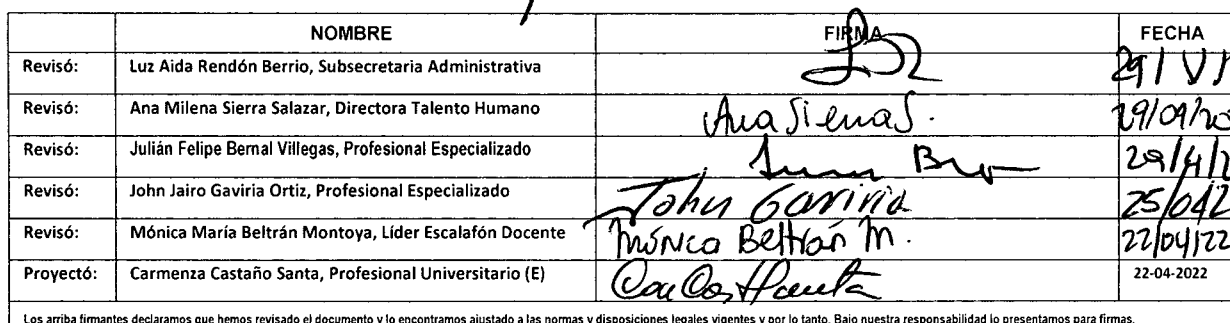 NOMBRE FIRMA FECHA
Revisó: Luz Aida Rendón Berrio, Subsecretaria Administrativa
Revisó: Ana Milena Sierra Salazar, Directora Talento Humano Ana Sierra S.
Revisó: Julián Felipe Bernal Villegas, Profesional Especializado
Revisó: John Jairo Gaviria Ortiz, Profesional Especializado John Gaviria 25/04/2
Revisó: Mónica María Beltrán Montoya, Líder Escalafón Docente Mónica Beltrán M. 22/04/22
Proyectó: Carmenza Castaño Santa, Profesional Universitario (E) 22-04-2022
Los arriba firmantes declaramos que hemos revisado el documento y lo encontramos ajustado a las normas y disposiciones legales vigentes y por lo tanto. Bajo nuestra responsabilidad lo presentamos para firmas.